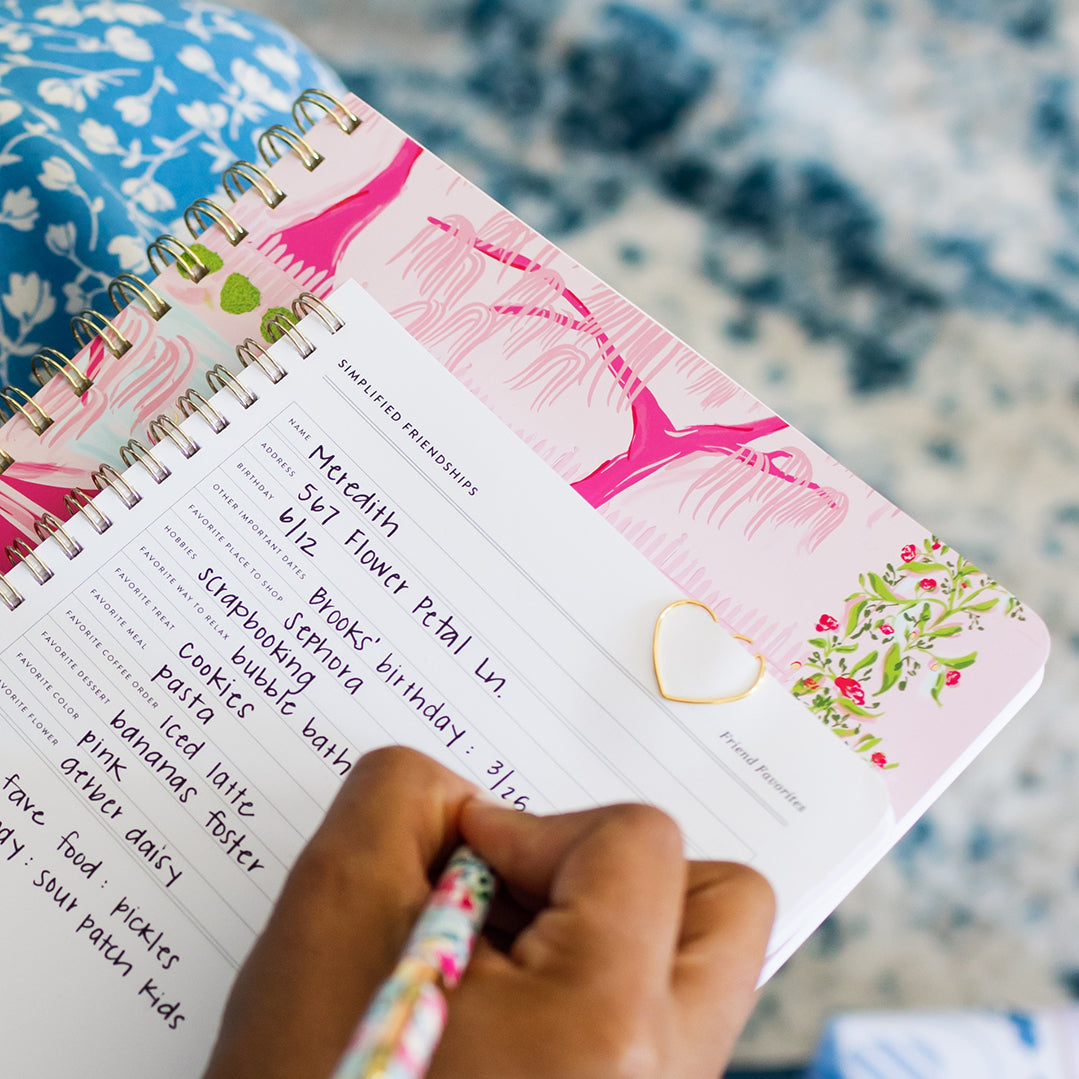 SIMPLIFIED FRIENDSHIPS
Friend Favorites
NAME Meredith
ADDRESS 567 Flower Petal Ln.
BIRTHDAY 6/12
OTHER IMPORTANT DATES Brooks' birthday: 3/26
FAVORITE PLACE TO SHOP Sephora
HOBBIES scrapbooking
FAVORITE WAY TO RELAX bubble bath
FAVORITE TREAT cookies
FAVORITE MEAL pasta
FAVORITE COFFEE ORDER iced latte
FAVORITE DESSERT bananas foster
FAVORITE COLOR pink
FAVORITE FLOWER gerber daisy
fave food: pickles
: sour patch kids